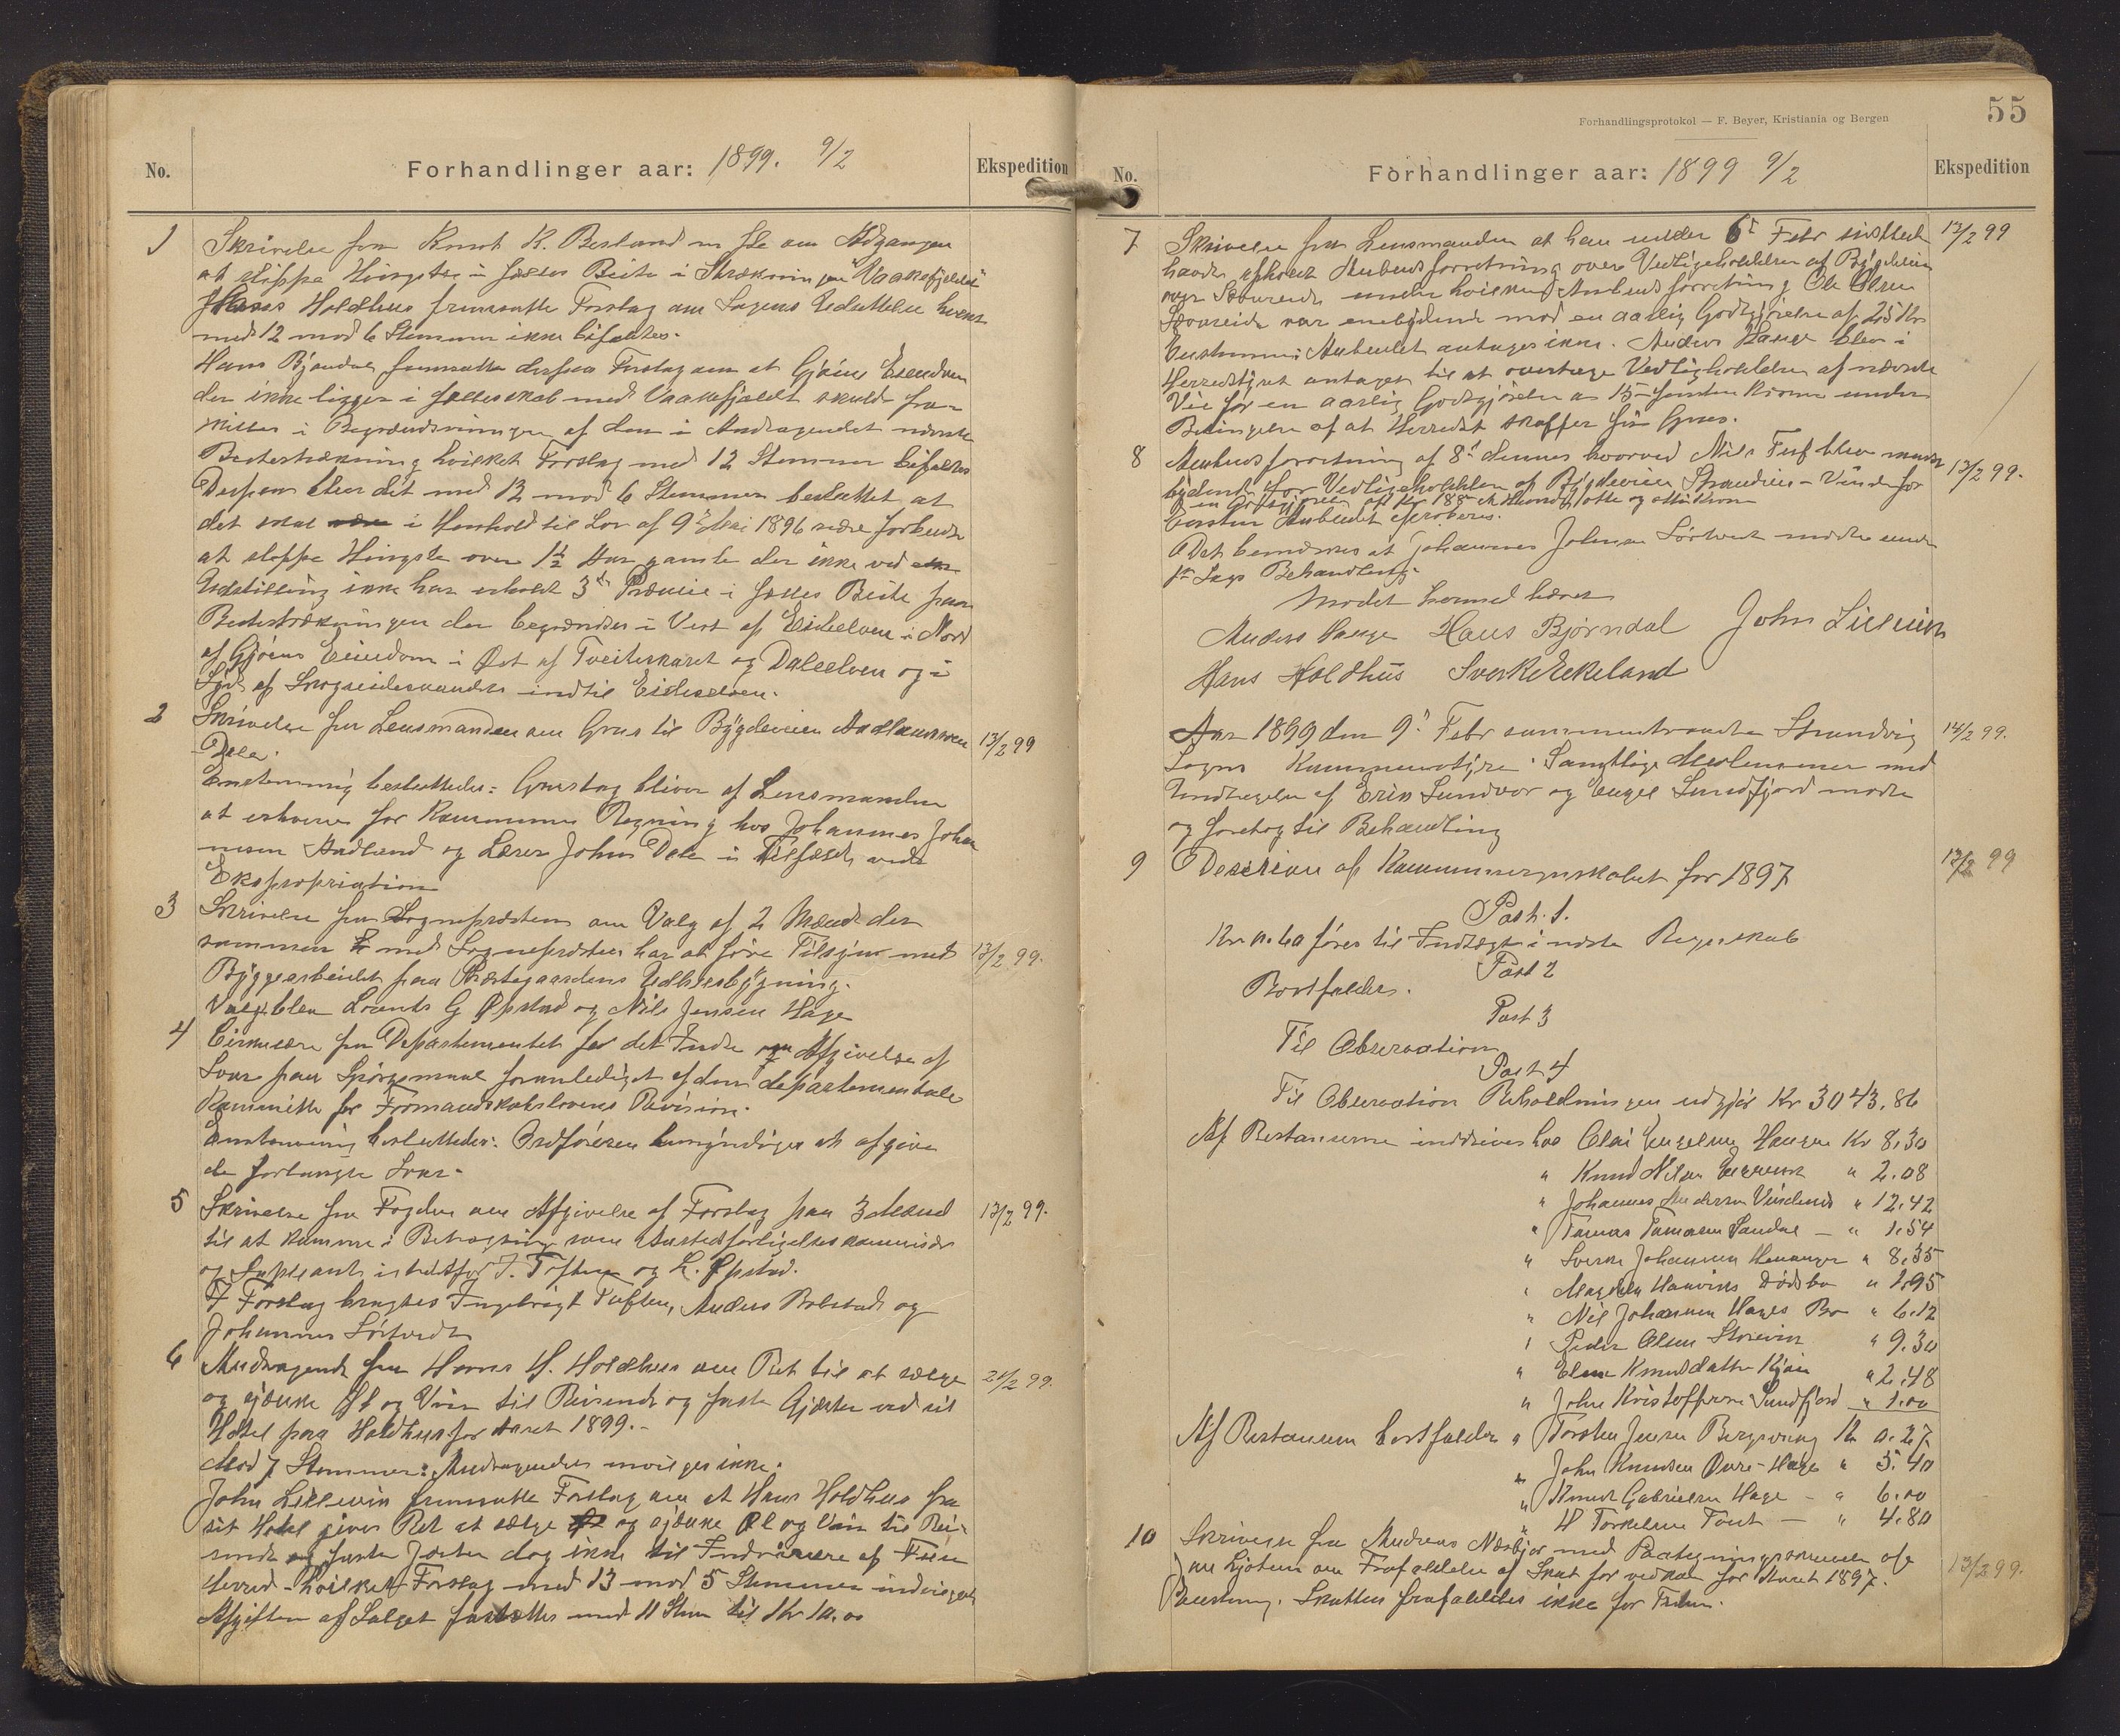 No.
Forhandlinger aar: 1899. 9/2
Ekspedition
1
Skrivelse fra Knut K. Bestand m fl om Adgangen
at slippe Hingster i fælles Beite i Strækningen "Vaaksefjeldet"
Hans Holdhus fremsatte Forslag om Sagens Udsættelse hvilket
med 12 mod 6 Stemmer ikke bifaltes.
Hans Bjørndal fremsatte derpaa Forslag om at Gjøens Eiendom
der ikke ligger i fællesskab med Vaaksefjeldet skulde fra-
skilles i Begrændsningen af den i Andragendet nævnte
Beitestrækning hvilket Forslag med 12 Stemmer bifaltes
Derpaa blev det med 12 mod 6 Stemmer besluttet at
det skal i Henhold til Lov af 9de Mai 1896 være forbudt
at slippe Hingste over 1½ Aar gamle der ikke ved
Udstilling ikke har erholdt 3de Præmie i fælles Beite paa
Beitestrækningen der begrændses i Vest af Eideelven i Nord
af Gjøens Eiendom i Øst af Tveiteskaret og Daleelven og i
Syd af Skogseidesvandet indtil Eideelven.
2
Skrivelse fra Lensmanden om Grus til Bygdeveien Aadlandsveien
Dale.
13/2 99
Enstemmig besluttedes: Grustag bliver af Lensmanden
at erhverve for Kommunens Regning hos Johannes Johan
nesen Aadland og Lærer Johan Dale i Tilfælde ved
Ekspropriation
3
Skrivelse fra Sognepræsten om Valg af 2 Mænd der
sammen med Sognepræsten har at føre Tilsyn med
13/2 99.
Byggearbeidet paa Præstegaardens Udhusbygning.
Valgt blev Lorents G Øpstad og Nils Jensen Hage
4
Cirkulære fra Departementet for det Indre om Afgivelse af
Svar paa Spørgsmaal foranlediget af den departementale
Kommitte for Formandskabslovens Revision.
Enstemmig besluttedes: Ordføreren bemyndiges at afgive
de forlangte Svar.
5
Skrivelse fra Fogden om Afgivelse af Forslag paa 3 Mænd
13/2 99.
til at komme i Betragtning som
og Supleant istedetfor I. Tuften og L. Øpstad.
I Forslag bragtes Ingebrigt Tuften, Anders Bolstad og
Johannes Sørtveit
6
Andragende fra Hans H. Holdhus om Ret til at sælge
21/2 99.
og skjænke Øl og Vin til Reisende og faste Gjæster ved sit
Hotel paa Holdhus for Aaret 1899.-
Mod 7 Stemmer: Andragendet indvilges ikke.
John Lillevik fremsatte Forslag om at Hans Holdhus fra
sit Hotel gives Ret at sælge og skjænke Øl og Vin til Rei-
sende og faste Gjæster dog ikke til Indvaanere af Fuse
Herred - hvilket Forslag med 13 mod 5 Stemmer indvilgedes
Afgiften af Salget fastsattes med 11 Stem til Kr 10.00
55
Forhandlingsprotokol — F. Beyer, Kristiania og Bergen
No.
Forhandlinger aar: 1899 9/2
Ekspedition
7
Skrivelse fra Lensmanden at han under 6te Febr sidstleden
13/2 99
havde afholdt Anbudsforretning over Vedligeholdelsen af Bygdeveien
over Sævareide under hvilken Anbudsforretning Ole Olsen
Sævareide var enebydende mod en aarlig Godtgjørelse af 25 Kr
Enstemmig: Anbudet antages ikke. Anders Hauge blev i
Herredstyret antaget til at overtage Vedligeholdelsen af nævnte
Vei for en aarlig Godtgjørelse af 15 femten Kroner under
Betingelse af at Herredet skaffer fri Grus.
8
Anbudsforretning af 8de dennes hvorved Nils Tuf blev mindst
13/2 99.
bydende for Vedligeholdelsen af Bygdeveien Strandvik - Vinnes for
en Godtgjørelse af Kr 188 et Hundrede otte og otti Kroner
Enstem Anbudet aproberes.
Det bemærkes at Johannes Johnsen Sørtveit mødte under
1ste Sags Behandling.
Mødet hermed hævet
Anders Hauge Hans Bjørndal John Lillevik
Hans Holdhus Sverke Ekeland
Aar 1899 den 9de Febr sammentraadte Strandvig
14/2 99.
Sogns Kommunestyre. Samtlige Medlemmer med
Undtagelse af Erik Sundvor og Engel Sundfjord mødte
og foretog til Behandling
9
Decision af Kommuneregnskabet for 1897
13/2 99
Post. 1.
Kr 0.60 føres til Indtægt i næste Regnskab
Post 2
Bortfalder.
Post 3
Til Observation
Post 4
Til Observation Beholdningen udgjør Kr 3043.86
Af Restancerne inddrives hos Olai Engelsen Haugen Kr 8.30
" Knud Nilsen " 2.08
" Johannes Andersen Vindenes " 12.42
" Tomas Tomasen Sandal — " 1.54
" Sverke Johannesen Henanger " 8.35
" Magdela Haavik Dødsbo " 1.95
" Nil Johannesen Hages Bo " 6.12
" Peder Olsen Storevik " 9.30
" Elen Knudsdatter Kjøn " 2.48
" John Kristoffersen Sundfjord " 1.00
Af Restancen bortfalder " Torsten Jensen Bergsvaag Kr 0.27
" John Knudsen Øvre-Hage " 5.40
" Knut Gabrielsen Hage - " 6.00
" H Torkelsen Tveit — " 4.80
10
Skrivelse fra Andreas Næsbjør med Paategningsskrivelse af
Joh Ljotun om Frafaldelse af Skat for vedkom for Aaret 1897.
13/2 99.
Beslutning. Skatten frafaldes ikke for Tiden.